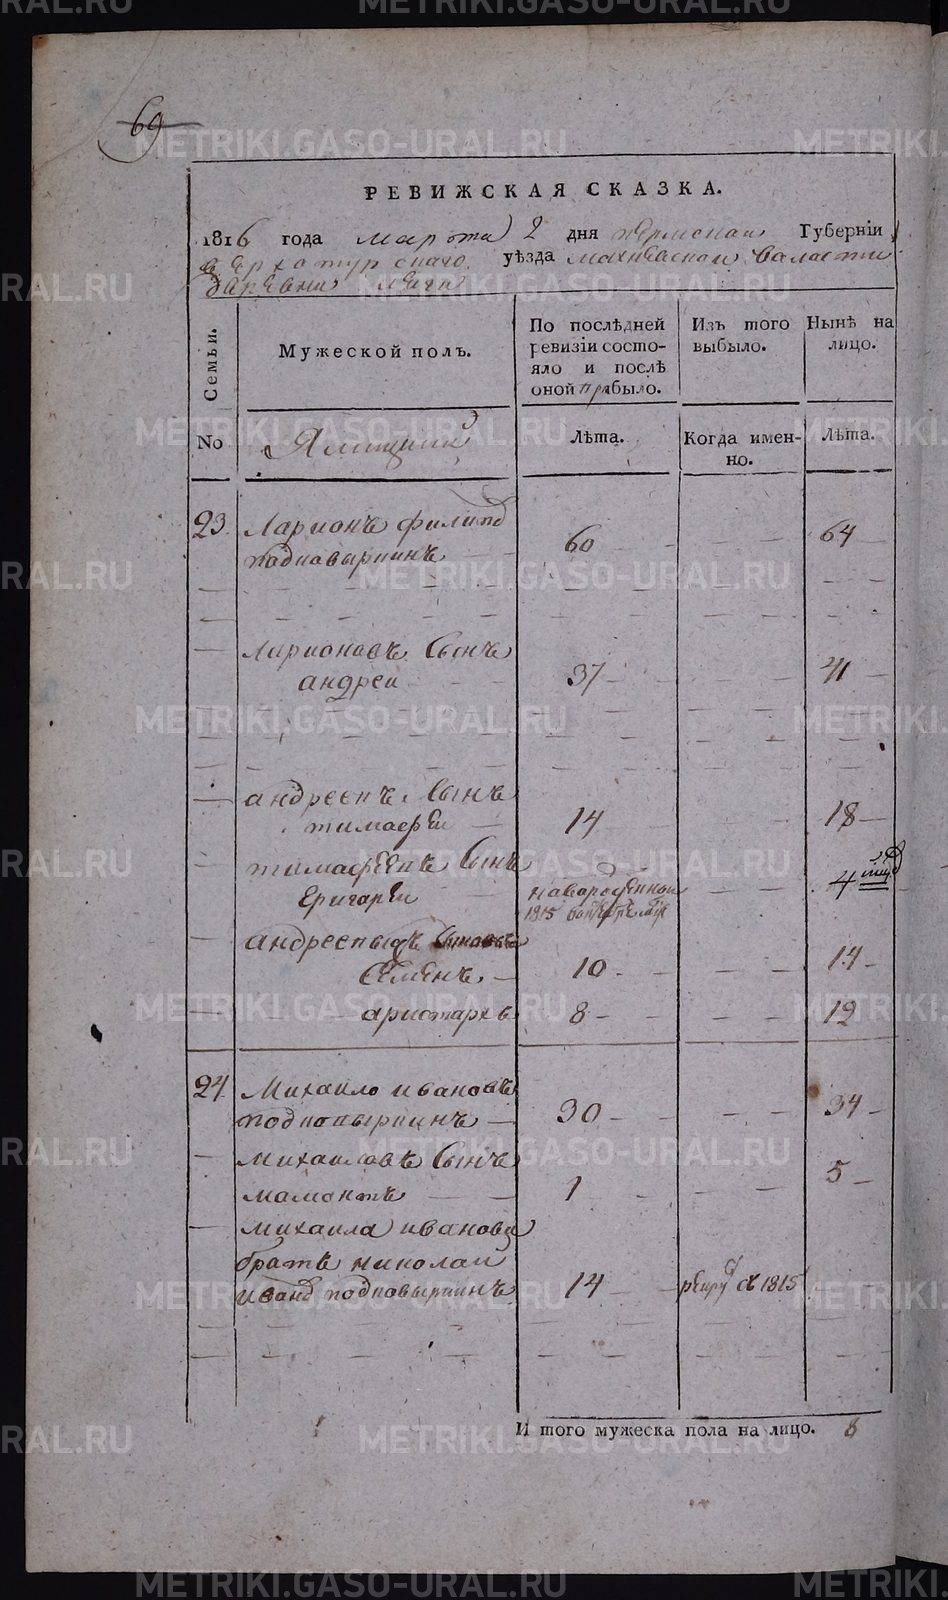 69
РЕВИЖСКАЯ СКАЗКА.
1816 года марта 2 дня пермской Губерніи
верхотурскаго уѣзда махневской валасти
Мужеской полъ.
Семьи.
No
Ямщики
По послѣдней ревизіи состояло и послѣ оной прибыло.
Лѣта.
Изъ того выбыло.
Когда именно.
Нынѣ на лицо.
Лѣта.
23 Ларионъ филипов
подковыркинъ 60 64
Ларионавъ Сынъ
андреи 37 41
андреевъ Сынъ
тимафеи 14 18
тимафеевъ Сынъ
григореи новорожденной
1815
4 мцов
андреевы Сыновья
Семенъ 10 14
аристархъ 8 12
24 Михаило ивановъ
подковыркинъ 30 34
михаиловъ Сынъ
мамонтъ 1 5
михаила иванова
братъ николаи
иванов подковыркинъ 14 рекру с 1815
И того мужеска пола на лицо. 8
METRIKI.GASO-URAL.RU